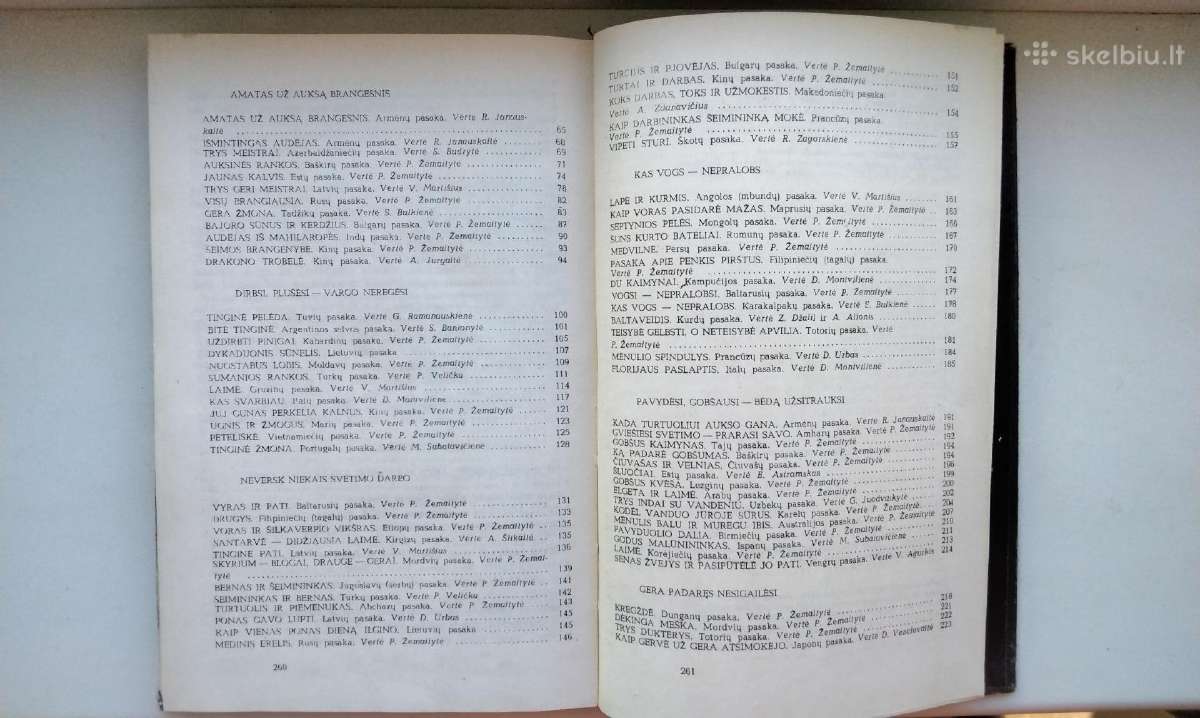 skelbiu.lt
AMATAS UŽ AUKSĄ BRANGESNIS
AMATAS UŽ AUKSĄ BRANGESNIS. Armėnų pasaka. Vertė R. Janaus-
kaitė 65
IŠMINTINGAS AUDĖJAS. Armėnų pasaka. Vertė R. Janauskaitė 68
TRYS MEISTRAI. Azerbaidžaniečių pasaka. Vertė S. Budrytė 69
AUKSINĖS RANKOS. Baškirų pasaka. Vertė P. Žemaitytė 71
JAUNAS KALVIS. Estų pasaka. Vertė P. Žemaitytė 74
TRYS GERI MEISTRAI. Latvių pasaka. Vertė V. Martišius 78
VISŲ BRANGIAUSIA. Rusų pasaka. Vertė P. Žemaitytė 82
GERA ŽMONA. Tadžikų pasaka. Vertė S. Bulkienė 83
BAJORO SŪNUS IR KERDŽIUS. Bulgarų pasaka. Vertė P. Žemaitytė 87
AUDĖJAS IŠ MAHILAROPĖS. Indų pasaka. Vertė P. Žemaitytė 90
ŠEIMOS BRANGENYBĖ. Kinų pasaka. Vertė P. Žemaitytė 93
DRAKONO TROBELĖ. Kinų pasaka. Vertė A. Jurgaitė 94
DIRBSI, PLUŠĖSI — VARGO NEREGĖSI
TINGINĖ PELĖDA. Tuvių pasaka. Vertė G. Ramanauskienė 100
BITĖ TINGINĖ. Argentinos selvos pasaka. Vertė S. Banionytė 101
UŽDIRBTI PINIGAI. Kabardinų pasaka. Vertė P. Žemaitytė 105
DYKADUONIS SŪNELIS. Lietuvių pasaka 107
NUOSTABUS LOBIS. Moldavų pasaka. Vertė P. Žemaitytė 109
SUMANIOS RANKOS. Turkų pasaka. Vertė P. Veličku 111
LAIMĖ. Gruzinų pasaka. Vertė V. Martišius 114
KAS SVARBIAU. Italų pasaka. Vertė D. Montvilienė 117
JUJ GUNAS PERKELIA KALNUS. Kinų pasaka. Vertė P. Žemaitytė 121
UGNIS IR ŽMOGUS. Marių pasaka. Vertė P. Žemaitytė 123
PETELIŠKĖ. Vietnamiečių pasaka. Vertė P. Žemaitytė 125
TINGINĖ ŽMONA. Portugalų pasaka. Vertė M. Subatavičienė 128
NEVERSK NIEKAIS SVETIMO DARBO
VYRAS IR PATI. Baltarusių pasaka. Vertė P. Žemaitytė 131
DRUGYS. Filipiniečių (tagalų) pasaka. Vertė P. Žemaitytė 133
VORAS IR ŠILKAVERPIO VIKŠRAS. Etiopų pasaka. Vertė P. Žemaitytė 135
SANTARVĖ — DIDŽIAUSIA LAIMĖ. Kirgizų pasaka. Vertė A. Šilkaitė 135
TINGINĖ PATI. Latvių pasaka. Vertė V. Martišius 136
SKYRIUM — BLOGAI, DRAUGE — GERAI. Mordvių pasaka. Vertė P. Žemai-
tytė 139
BERNAS IR ŠEIMININKAS. Jugoslavų (serbų) pasaka. Vertė P. Žemaitytė 141
ŠEIMININKAS IR BERNAS. Turkų pasaka. Vertė P. Veličku 142
TURTUOLIS IR PIEMENUKAS. Abchazų pasaka. Vertė P. Žemaitytė 143
PONAS GAVO LUPTI. Latvių pasaka. Vertė D. Urbas 145
KAIP VIENAS PONAS DIENĄ ILGINO. Lietuvių pasaka 145
MEDINIS ERELIS. Rusų pasaka. Vertė P. Žemaitytė 146
260
TURČIUS IR PJOVĖJAS. Bulgarų pasaka. Vertė P. Žemaitytė 151
TURTAI IR DARBAS. Kinų pasaka. Vertė P. Žemaitytė 152
KOKS DARBAS, TOKS IR UŽMOKESTIS. Makedoniečių pasaka.
Vertė A. Zdanavičius 154
KAIP DARBININKAS ŠEIMININKĄ MOKĖ. Prancūzų pasaka.
Vertė P. Žemaitytė 155
VIPETI STURI. Škotų pasaka. Vertė R. Zagorskienė 157
KAS VOGS — NEPRALOBS
LAPĖ IR KURMIS. Angolos (mbundų) pasaka. Vertė V. Martišius 161
KAIP VORAS PASIDARĖ MAŽAS. Maprusių pasaka. Vertė P. Žemaitytė 163
SEPTYNIOS PELĖS. Mongolų pasaka. Vertė P. Žemaitytė 166
ŠUNS KURTO BATELIAI. Rumunų pasaka. Vertė P. Žemaitytė 167
MEDVILNĖ. Persų pasaka. Vertė P. Žemaitytė 170
PASAKA APIE PENKIS PIRŠTUS. Filipiniečių (tagalų) pasaka.
Vertė P. Žemaitytė 172
DU KAIMYNAI. Kampučijos pasaka. Vertė D. Montvilienė 174
VOGSI — NEPRALOBSI. Baltarusių pasaka. Vertė P. Žemaitytė 177
KAS VOGS — NEPRALOBS. Karakalpakų pasaka. Vertė E. Bulkienė 178
BALTAVEIDIS. Kurdų pasaka. Vertė Z. Džalil ir A. Alionis 180
TEISYBĖ GELBSTI, O NETEISYBĖ APVILIA. Totorių pasaka. Vertė
P. Žemaitytė 181
MĖNULIO SPINDULYS. Prancūzų pasaka. Vertė D. Urbas 184
FLORIJAUS PASLAPTIS. Italų pasaka. Vertė D. Montvilienė 185
PAVYDĖSI, GOBŠAUSI — BĖDĄ UŽSITRAUKSI
KADA TURTUOLIUI AUKSO GANA. Armėnų pasaka. Vertė R. Janauskaitė 191
GVIEŠIESI SVETIMO — PRARASI SAVO. Amharų pasaka. Vertė P. Žemaitytė 191
GOBŠUS KAIMYNAS. Tajų pasaka. Vertė P. Žemaitytė 193
KĄ PADARĖ GOBŠUMAS. Baškirų pasaka. Vertė P. Žemaitytė 194
ČIUVAŠAS IR VELNIAS. Čiuvašų pasaka. Vertė P. Žemaitytė 194
ŠLUOČIAI. Estų pasaka. Vertė E. Astramskas 196
GOBŠUS KVĖŠA. Lezginų pasaka. Vertė P. Žemaitytė 199
ELGETA IR LAIMĖ. Arabų pasaka. Vertė P. Žemaitytė 200
TRYS INDAI SU VANDENIU. Uzbekų pasaka. Vertė G. Juodvaikytė 202
KODĖL VANDUO JŪROJE SŪRUS. Karelų pasaka. Vertė P. Žemaitytė 204
MĖNULIS BALU IR MUREGU IBIS. Australijos pasaka. Vertė P. Žemaitytė 207
PAVYDUOLIO DALIA. Birmiečių pasaka. Vertė P. Žemaitytė 210
GODUS MALŪNININKAS. Ispanų pasaka. Vertė M. Subatavičienė 211
LAIMĖ. Korėjiečių pasaka. Vertė P. Žemaitytė 213
SENAS ŽVEJYS IR PASIPŪTĖLĖ JO PATI. Vengrų pasaka. Vertė V. Agurkis 214
GERA PADARĘS NESIGAILĖSI
KREGŽDĖ. Dunganų pasaka. Vertė P. Žemaitytė 218
DĖKINGA MEŠKA. Mordvių pasaka. Vertė P. Žemaitytė 221
TRYS DUKTERYS. Totorių pasaka. Vertė P. Žemaitytė 222
KAIP GERVĖ UŽ GERA ATSIMOKĖJO. Japonų pasaka. Vertė D. Vaschevaitė 223
261